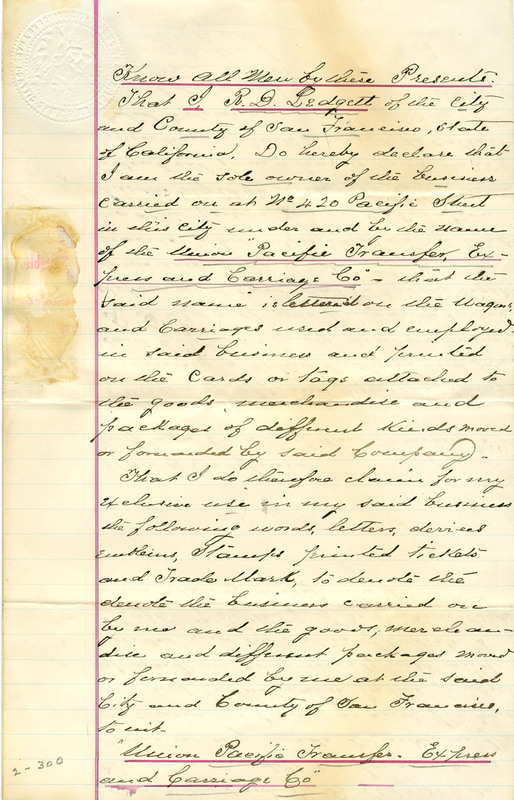 Know All Men by these Presents.
That I, R. D. Ledgett of the City
and County of San Francisco, State
of California, Do hereby declare that
I am the sole owner of the business
carried on at No 420 Pacific Street
in this City under and by the name
of the Union "Pacific Transfer, Ex-
press and Carriage Co" - that the
said name is lettered on the Wagons,
and Carriages used and employed
in said business and printed
on the Cards or tags attached to
the goods, merchandise and
packages of different kinds moved
or forwarded by said Company -
That I do therefore claim for my
exclusive use in my said business
the following words, letters, devices
emblems, Stamps printed tickets
and Trade Mark, to denote the
denote the business carried on
by me and the goods, merchan-
dise and different packages moved
or forwarded by me at the said
City and County of San Francisco,
to wit-
"Union Pacific Transfer. Express
and Carriage Co"
2-300